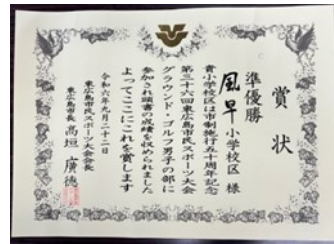 賞状
準優勝
風早小学校区 様
貴小学校区は市制施行五十周年記念
第三十六回東広島市民スポーツ大会
グラウンド・ゴルフ男子の部に
参加され頭書の成績を収められました
よってここにこれを賞します
令和六年九月二十二日
東広島市民スポーツ大会会長
東広島市長 高垣 廣徳